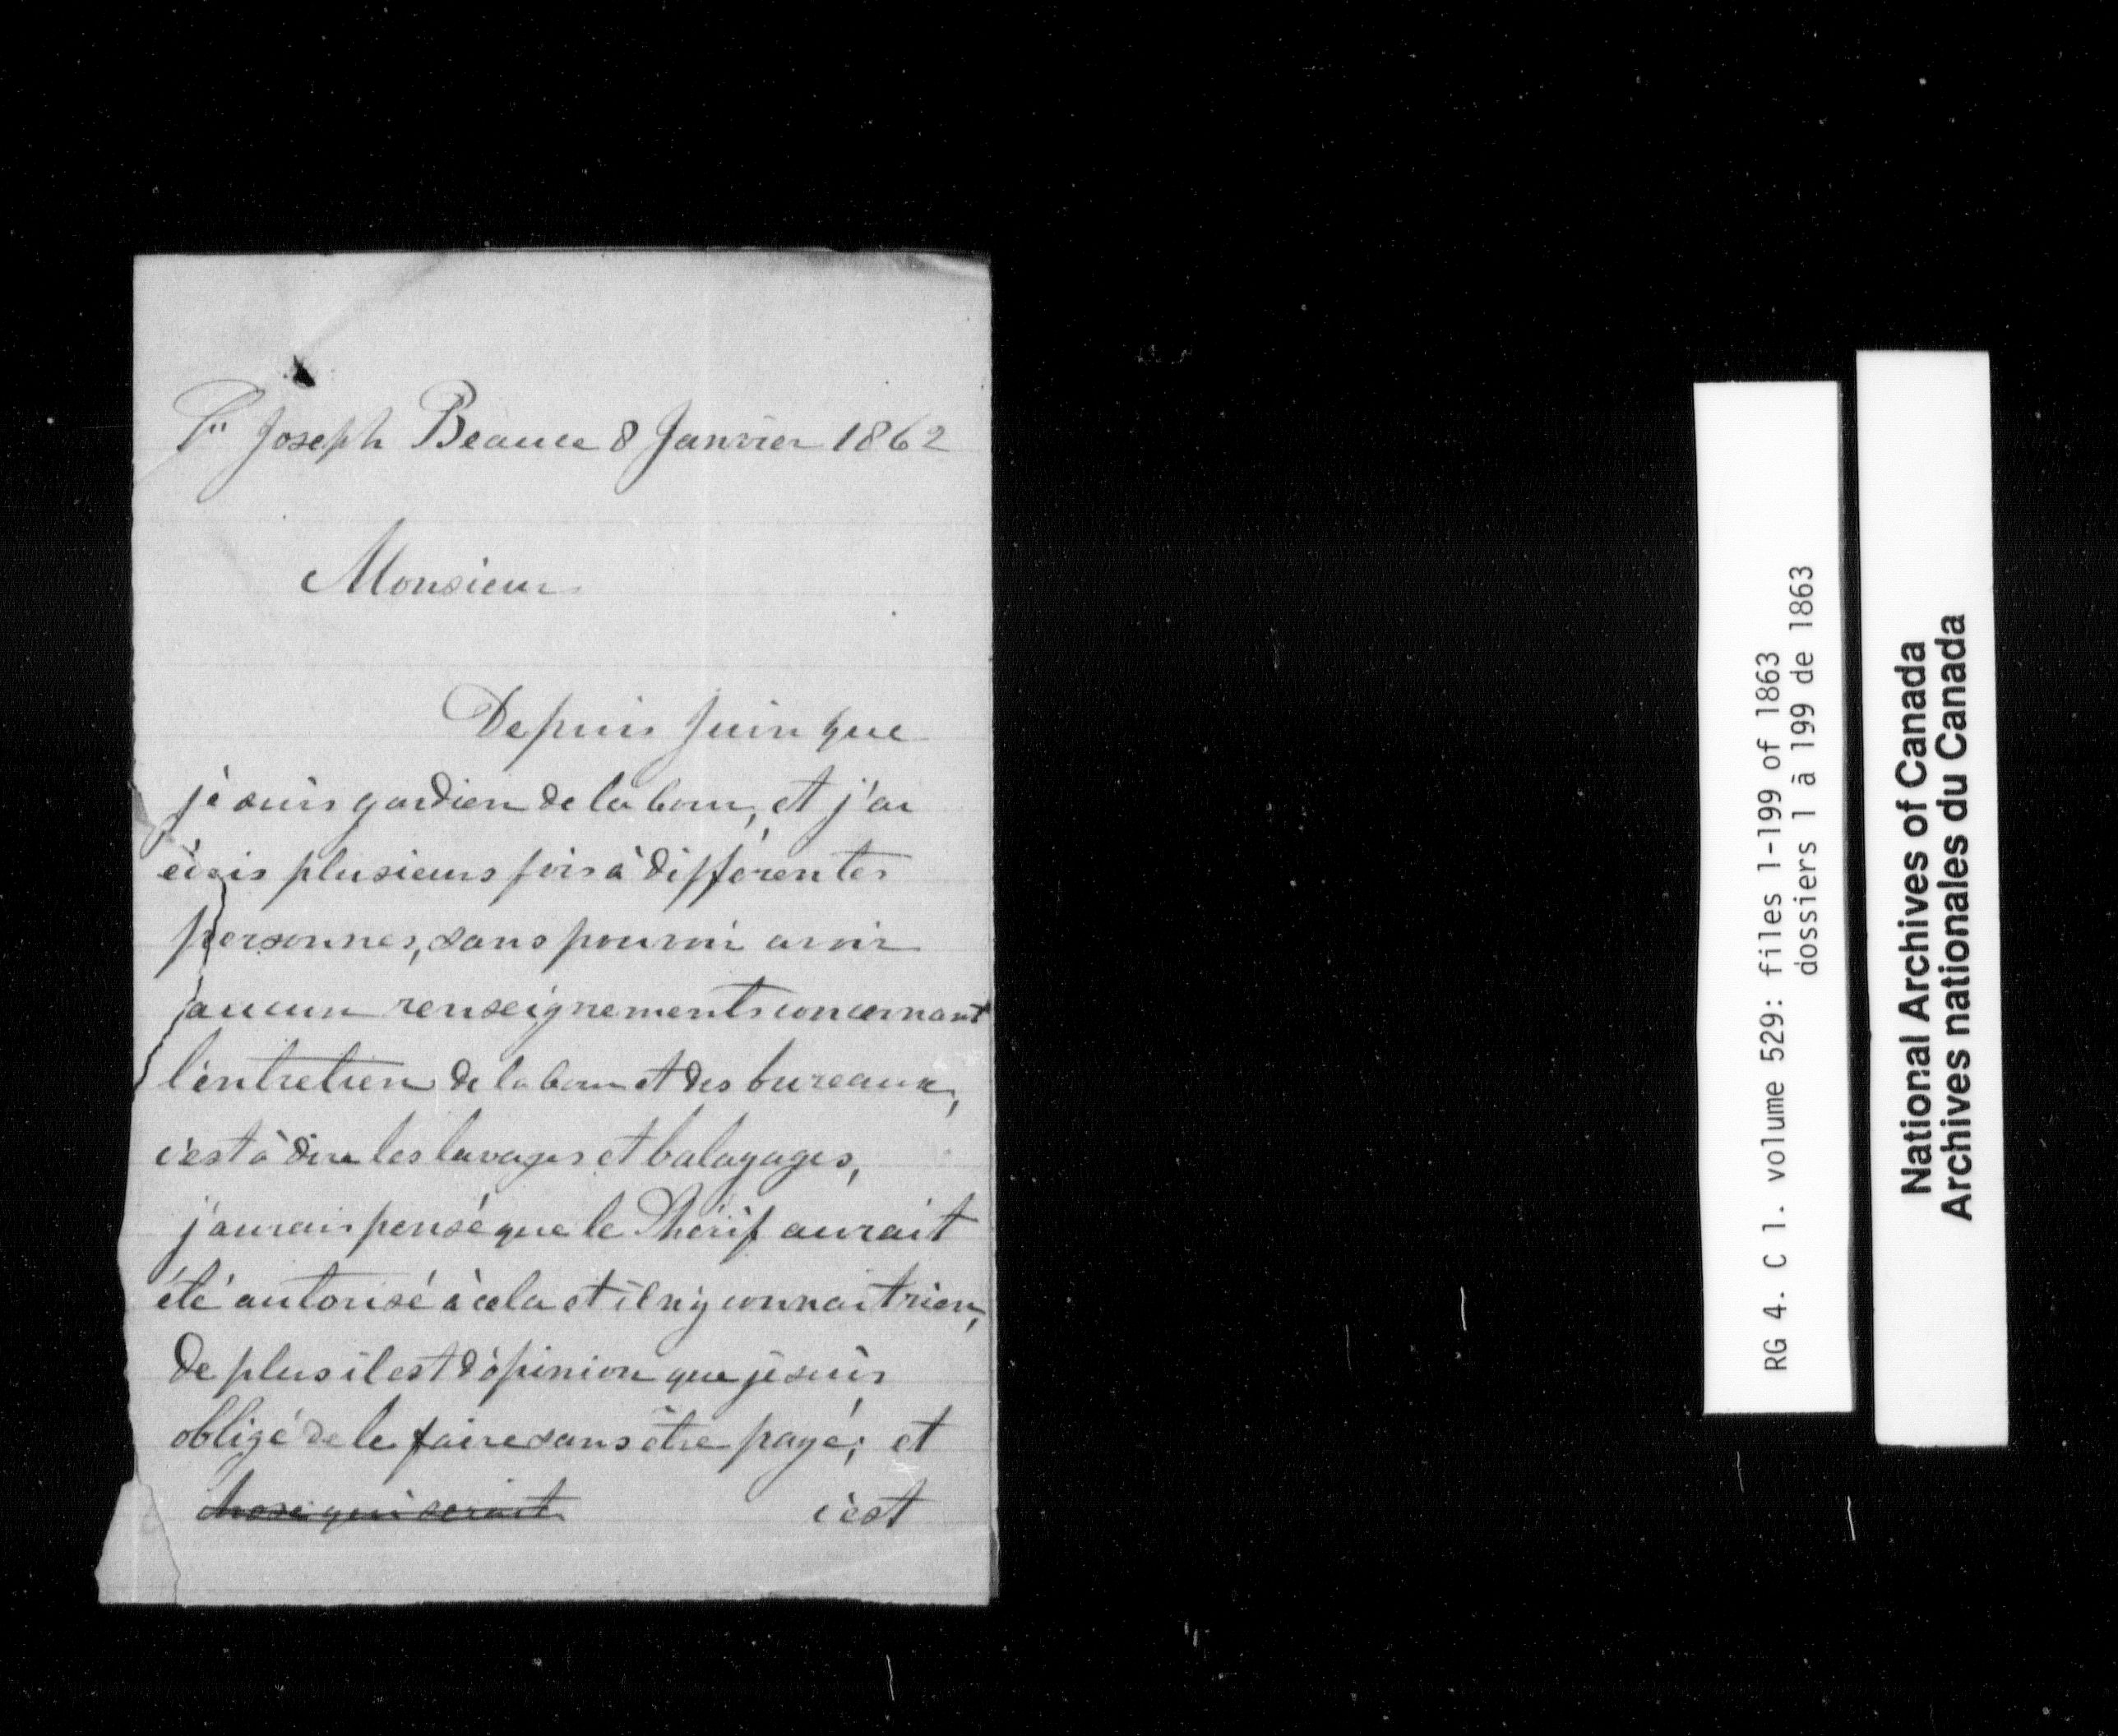 St Joseph Beauce 8 Janvier 1862
Monsieur
Depuis Juin que
je suis gardien de la cour, et j'ai
écris plusieurs fois à différentes
personnes, sans pouvoir avoir
aucun renseignements concernant
l'entretien de la cour et des bureaux,
c'est à dire les lavages et balayages,
j'aurais pensé que le Shérif aurait
été autorisé à cela et il n'y connait rien,
de plus il est d'opinion que je suis
obligé de le faire sans être payé; et
chose qui serait c'est
RG 4. C 1. volume 529: files 1-199 of 1863
dossiers 1 à 199 de 1863
National Archives of Canada
Archives nationales du Canada